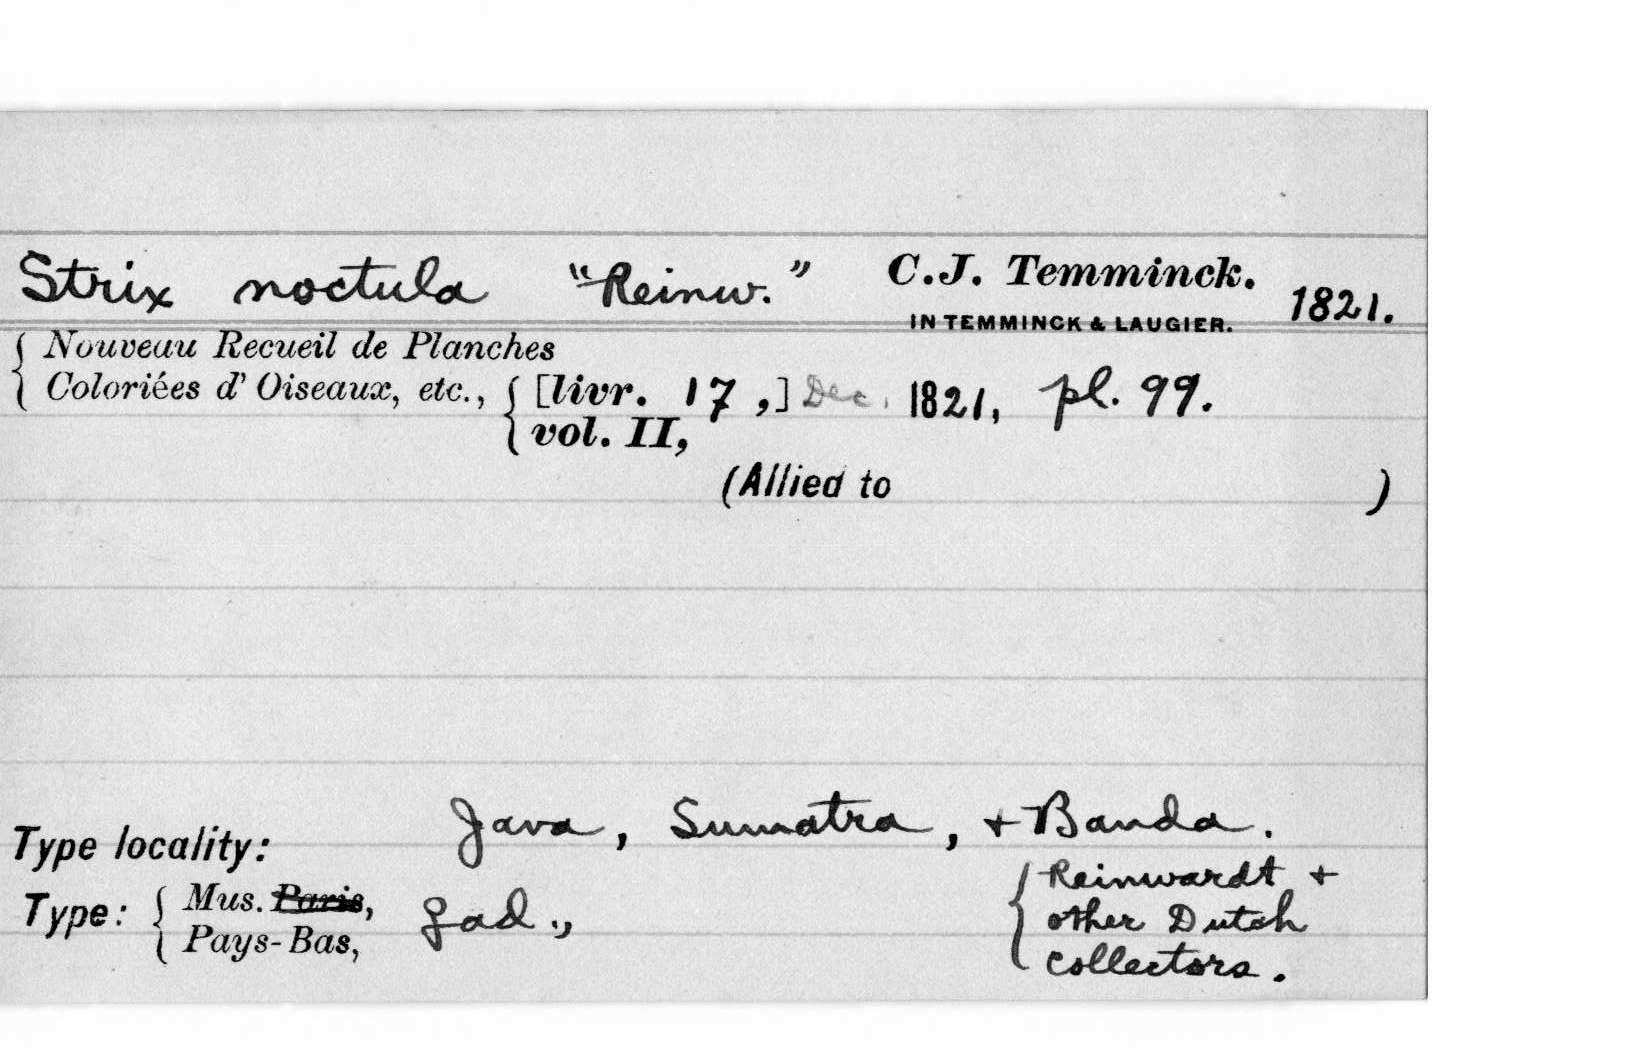 Strix noctula "Reinw." C.J. Temminck. 1821.
IN TEMMINCK & LAUGIER.
Nouveau Recueil de Planches
Coloriées d'Oiseaux, etc., [livr. 17,] Dec. 1821, pl. 99.
vol. II,
(Allied to )
Type locality: Java, Sumatra, + Banda.
Type: Mus. Paris, gad., Reinwardt +
Pays-Bas, other Dutch
collectors.